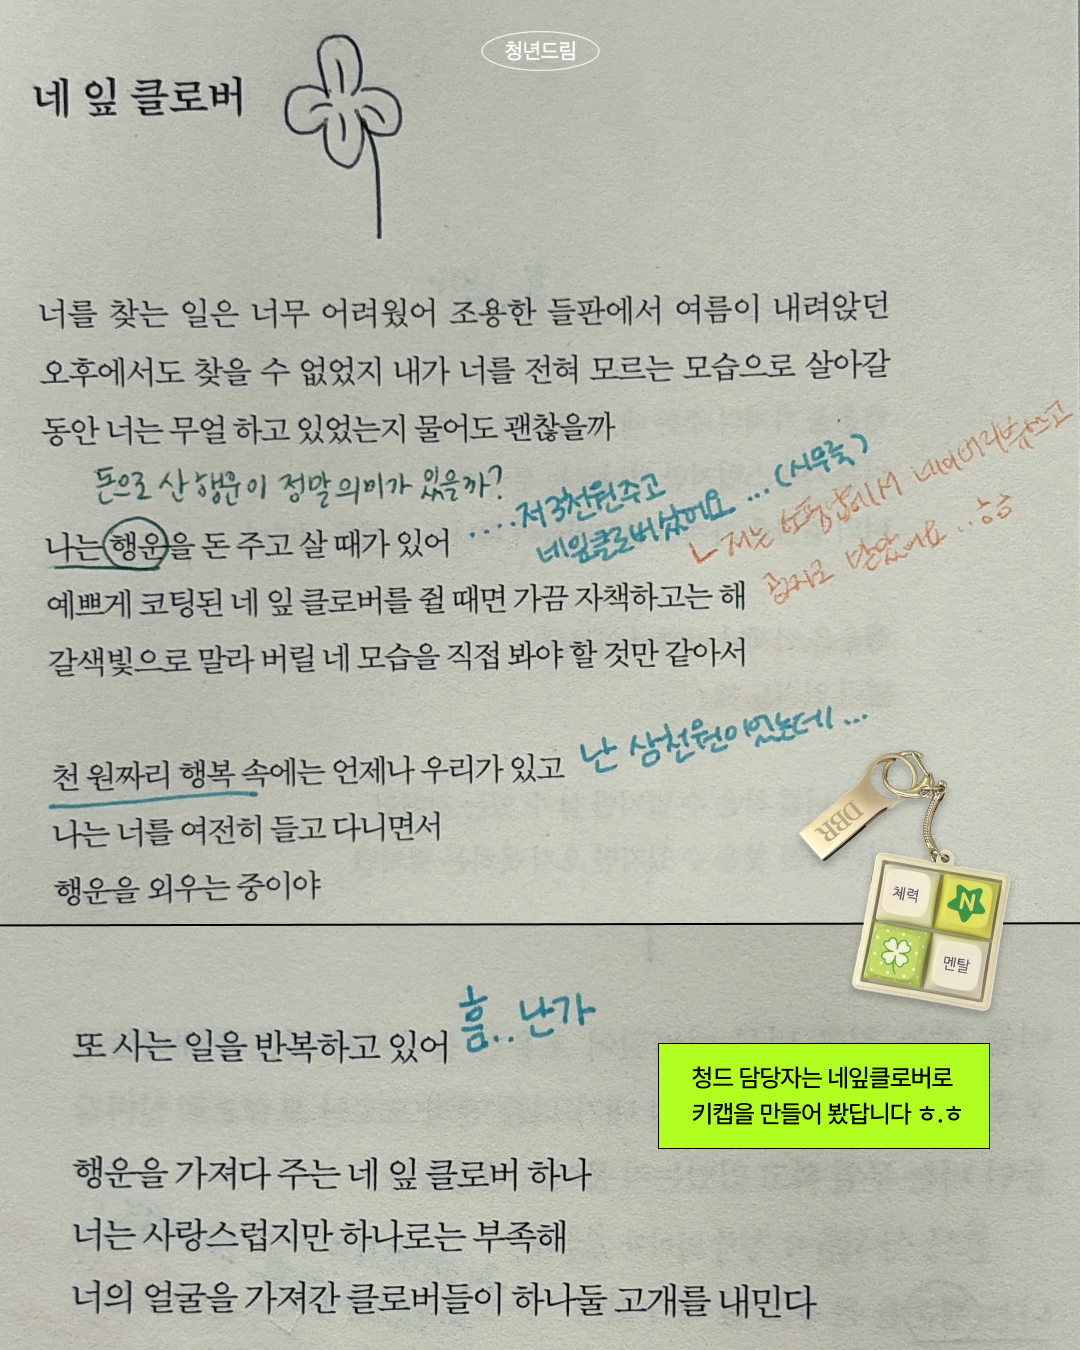 청년드림
네 잎 클로버
너를 찾는 일은 너무 어려웠어 조용한 들판에서 여름이 내려앉던
오후에서도 찾을 수 없었지 내가 너를 전혀 모르는 모습으로 살아갈
동안 너는 무얼 하고 있었는지 물어도 괜찮을까
돈으로 산 행운이 정말 의미가 있을까?
나는 행운을 돈 주고 살 때가 있어
....저 3천원주고
네잎클로버샀어요 ...(시무룩)
ㄴ 저는 에서 네이버리뷰쓰고
공짜로 받았어요..ㅎㅎ
예쁘게 코팅된 네 잎 클로버를 쥘 때면 가끔 자책하고는 해
갈색빛으로 말라 버릴 네 모습을 직접 봐야 할 것만 같아서
천 원짜리 행복 속에는 언제나 우리가 있고
난 삼천원이었는데...
나는 너를 여전히 들고 다니면서
행운을 외우는 중이야
DBR
체력
N
멘탈
또 사는 일을 반복하고 있어
흠.. 난가
청드 담당자는 네잎클로버로
키캡을 만들어 봤답니다 ㅎ.ㅎ
행운을 가져다 주는 네 잎 클로버 하나
너는 사랑스럽지만 하나로는 부족해
너의 얼굴을 가져간 클로버들이 하나둘 고개를 내민다